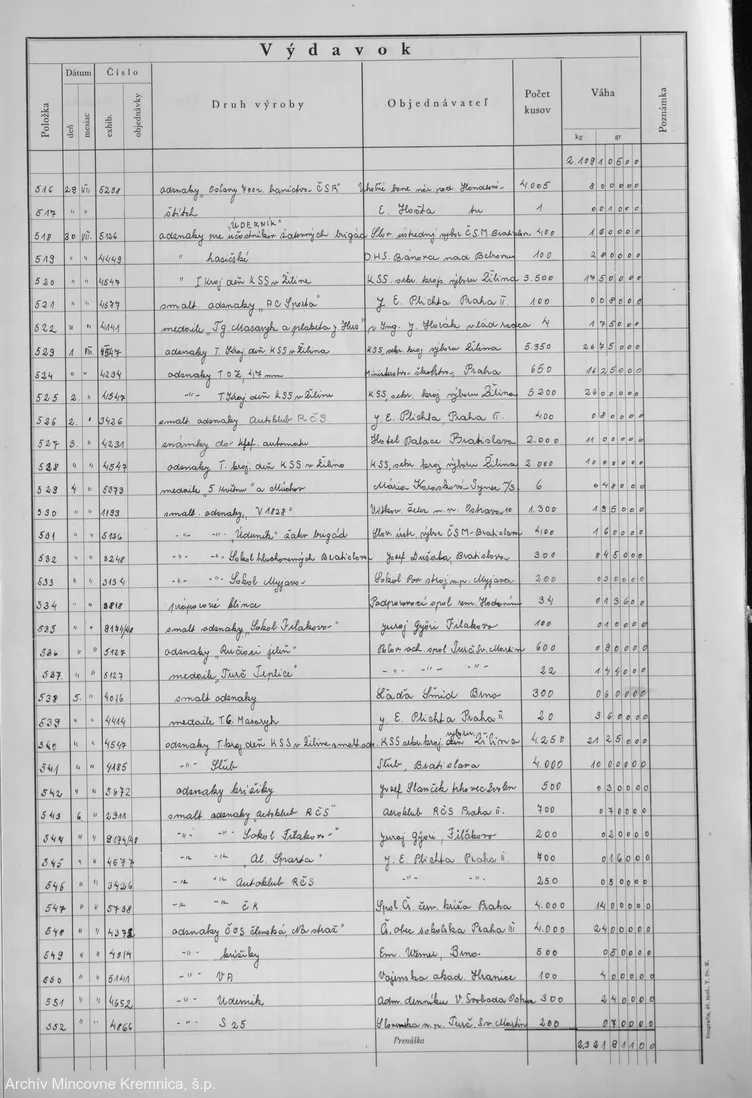 Výdavok
Položka Dátum deň mesiac Číslo exhib. objednávky Druh výroby Objednávateľ Počet kusov Váha kg gr Poznámka
2.109 1 0 5 0 0
516 29 VII. 5298 odznaky "Oslavy 700r. baníctva ČSR" 4.005 8 0 0 0 0 0
517 " " štítok E. Hošta tu 1 0 0 1 0 0
"ÚDERNÍK"
518 30 VII. 5136 odznaky pre účastníkov žatevných brigád Slov. ústredný výbor ČSM Bratislava 400 1 6 0 0 0 0
519 " " 4449 " hasičské DHS. Bánovce nad Bebravou 100 2 8 0 0 0 0
520 " " 4547 " I Kraj deň KSS v Žiline KSS. sekr. kraj. výboru Žilina 3.500 17 5 0 0 0 0
521 " " 4577 smalt. odznaky "AC Sparta" J. E. Plichta Praha II. 100 0 0 8 0 0 0
522 " " 4141 medaile "T.g. Masaryk a plaketa J. Hus" p. Ing. J. Horák vlád. radca 4 1 7 5 0 0 0
523 1 VIII. 4547 odznaky I. Kraj deň KSS v Žilina KSS. sekr. kraj výboru Žilina 5.350 26 7 5 0 0 0
524 " " 4234 odznaky TOZ, 17 mm Ministerstvo školstva, Praha 650 16 2 5 0 0 0
525 2. " 4547 -"- I Kraj deň KSS v Žiline KSS. sekr. kraj výboru Žilina 5200 26 0 0 0 0 0
526 2. " 3426 smalt odznaky Autoklub RČS J. E. Plichta, Praha II. 400 0 8 0 0 0 0
527 3. " 4231 známky do automatu Hotel Palace Bratislava 2.000 11 0 0 0 0 0
528 " " 4547 odznaky I. kraj. deň KSS v Žilina KSS, sekr kraj výboru Žilina 2.000 10 0 0 0 0 0
529 4 " 5373 medaile "5 Květen" a Mnichov Mária 6 0 4 8 0 0 0
530 " " 1193 smalt. odznaky, "V 1828" Vítkov. želez. n. p. Ostrava 10 1.300 1 9 5 0 0 0
531 " " 5136 -"- -"- Úderník" žatev brigád Slov. ústr. výbor ČSM-Bratislava 400 1 6 0 0 0 0
532 " " 3248 -"- -"- Sokol hluchonemých Bratislava Jozef Dušata, Bratislava 300 0 4 5 0 0 0
533 " " 3134 -"- -"- Sokol Myjava Sokol Pov. stroj. n.p. Myjava 200 0 3 0 0 0 0
534 " " 3818 práporové klince Podporovací spol. 34 0 1 3 6 0 0
535 " " 8174/48 smalt odznaky "Sokol Fiľakovo" Juraj Györi Fiľakovo 100 0 1 0 0 0 0
536 " " 5127 odznaky "Ručiaci jeleň" Poľov. och. spol Turč. Sv. Martin 600 0 9 0 0 0 0
537. " " 5127 medaile "Turč. Teplice" -"- -"- -"- 22 1 4 4 0 0 0
538 5. " 4016 smalt odznaky Láďa Šmíd Brno 300 0 6 0 0 0 0
539 " " 4414 medaile TG. Masaryk J. E. Plichta Praha II 20 3 6 0 0 0 0
540 " " 4547 odznaky I. kraj deň KSS v Žiline smalt odz. KSS sekr. kraj. výboru Žilina 4.250 21 2 5 0 0 0
541 " " 4185 -"- Sľub Sľub, Bratislava 4.000 10 0 0 0 0 0
542 " " 5672 odznaky krížiky Jozef Slančík 500 0 3 0 0 0 0
543 6. " 2911 smalt odznaky "autoklub RČS" Aeroklub RČS Praha II. 700 0 7 0 0 0 0
544 " " 8174/48 -"- -"- Sokol Fiľakovo-" Juraj Györi, Fiľakovo 200 0 2 0 0 0 0
545 " " 4577 -"- -"- "Al. Sparta" J. E. Plichta Praha II 700 0 1 6 0 0 0
546 " " 3426 -"- -"- Autoklub RČS -"- -"- 250 0 5 0 0 0 0
547 " " 5738 -"- -"- ČK Spol Čs. červ. kríža Praha 4.000 14 0 0 0 0 0
548 " " 4372 odznaky ČOS členská "Na stráž" Čs. obec sokolska Praha III 4.000 24 0 0 0 0 0
549 " " 4014 -"- krížiky Em. Werner, Brno. 500 0 5 0 0 0 0
550 " " 5141 -"- VA Vojenska akad. Hranice 100 4 0 0 0 0 0
551 " " 4652 -"- Úderník Adm. denníku V. Svoboda Ostrava 300 2 4 0 0 0 0
552 " " 4866 -"- S 25 Slovenka n. p. Turč. Sv. Martin 200 0 7 0 0 0 0
Prenáška 2.321 8 1 1 0 0
Neografia, úč. spol., T. Sv. M.
Archív Mincovne Kremnica, š.p.